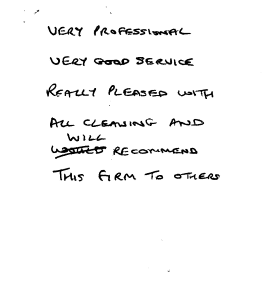 VERY PROFESSIONAL
VERY GOOD SERVICE
REALLY PLEASED WITH
ALL CLEANING AND
WILL
WOULD RECOMMEND
THIS FIRM TO OTHERS